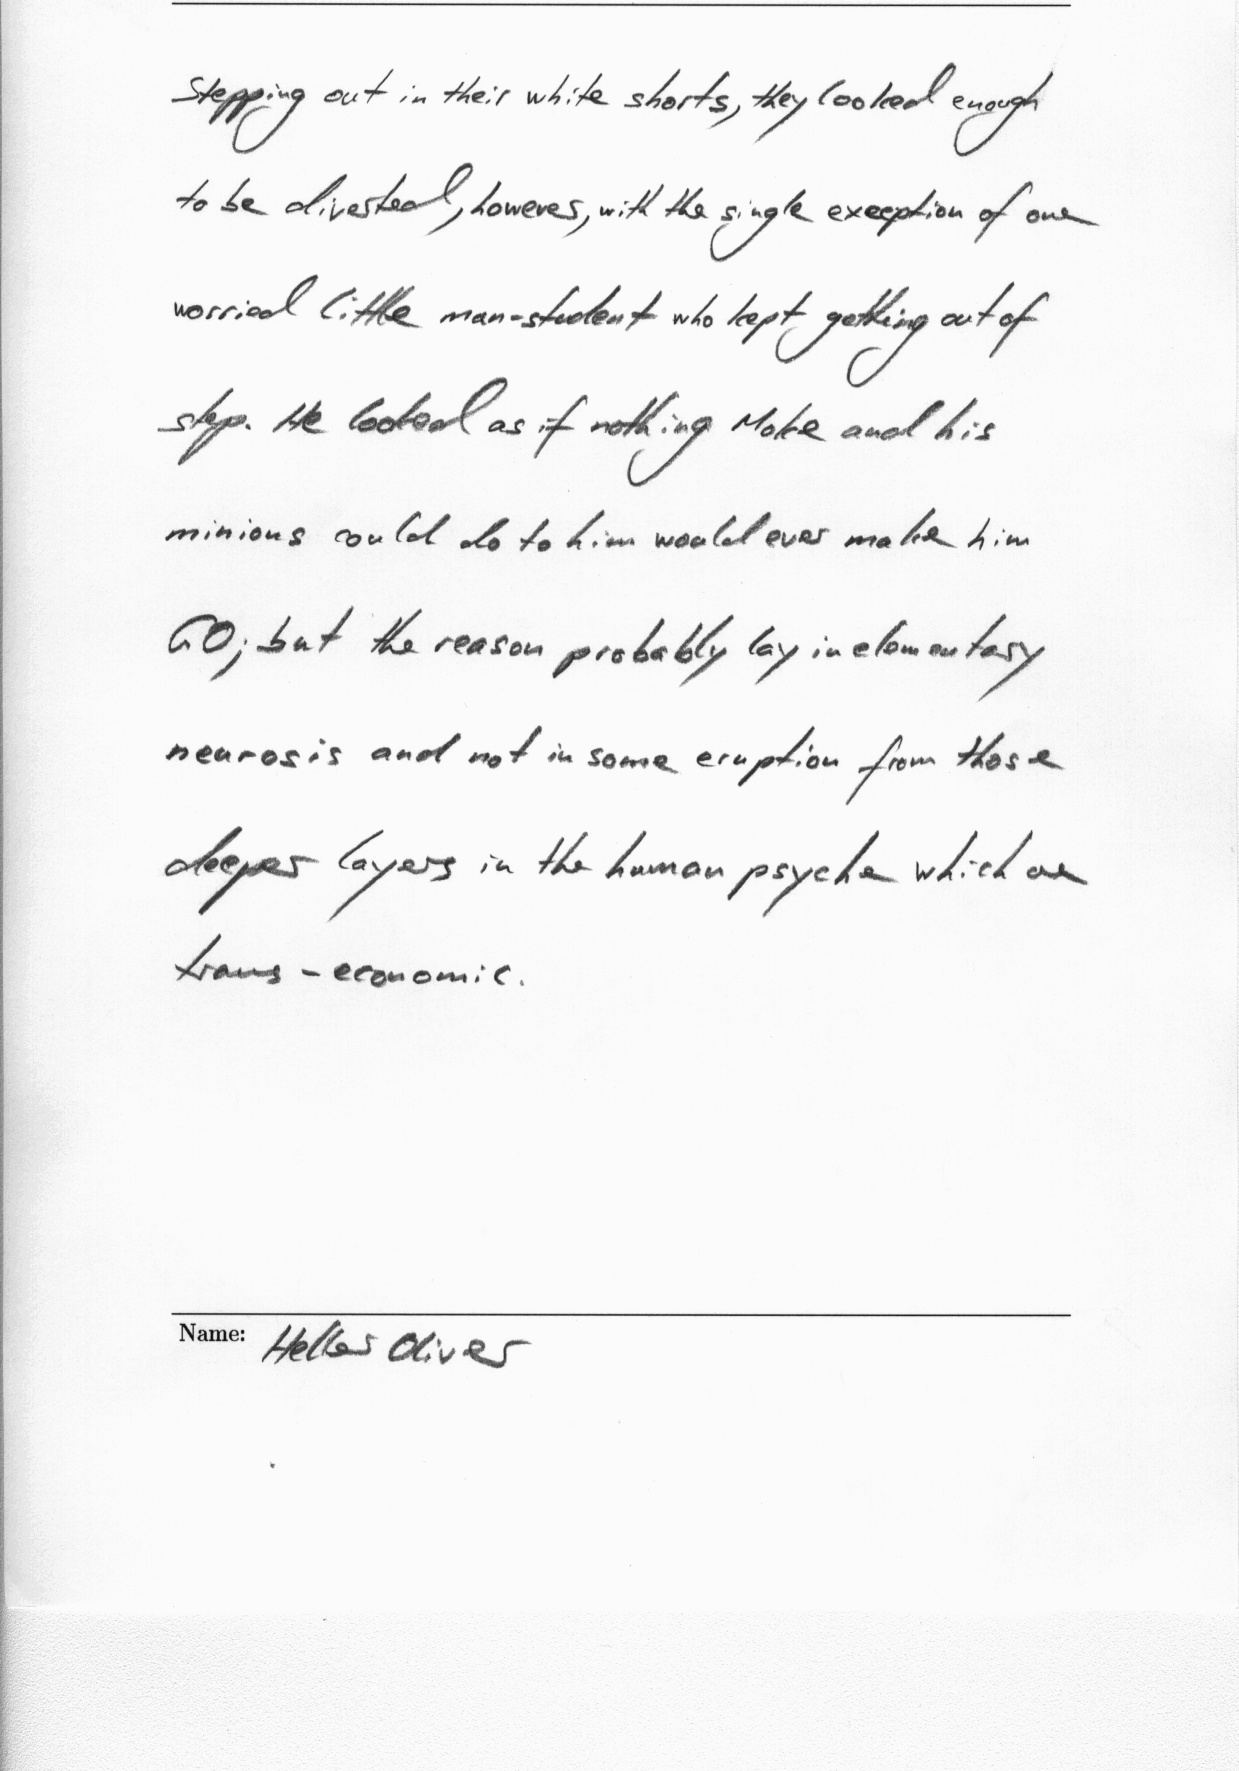 Stepping out in their white shorts, they looked enough
to be divested, however, with the single exception of one
worried little man-student who kept getting out of
step. He looked as if nothing Moke and his
minions could do to him would ever make him
GO; but the reason probably lay in elementary
neurosis and not in some eruption from those
deeper layers in the human psyche which are
trans-economic.
Name: Heller Oliver